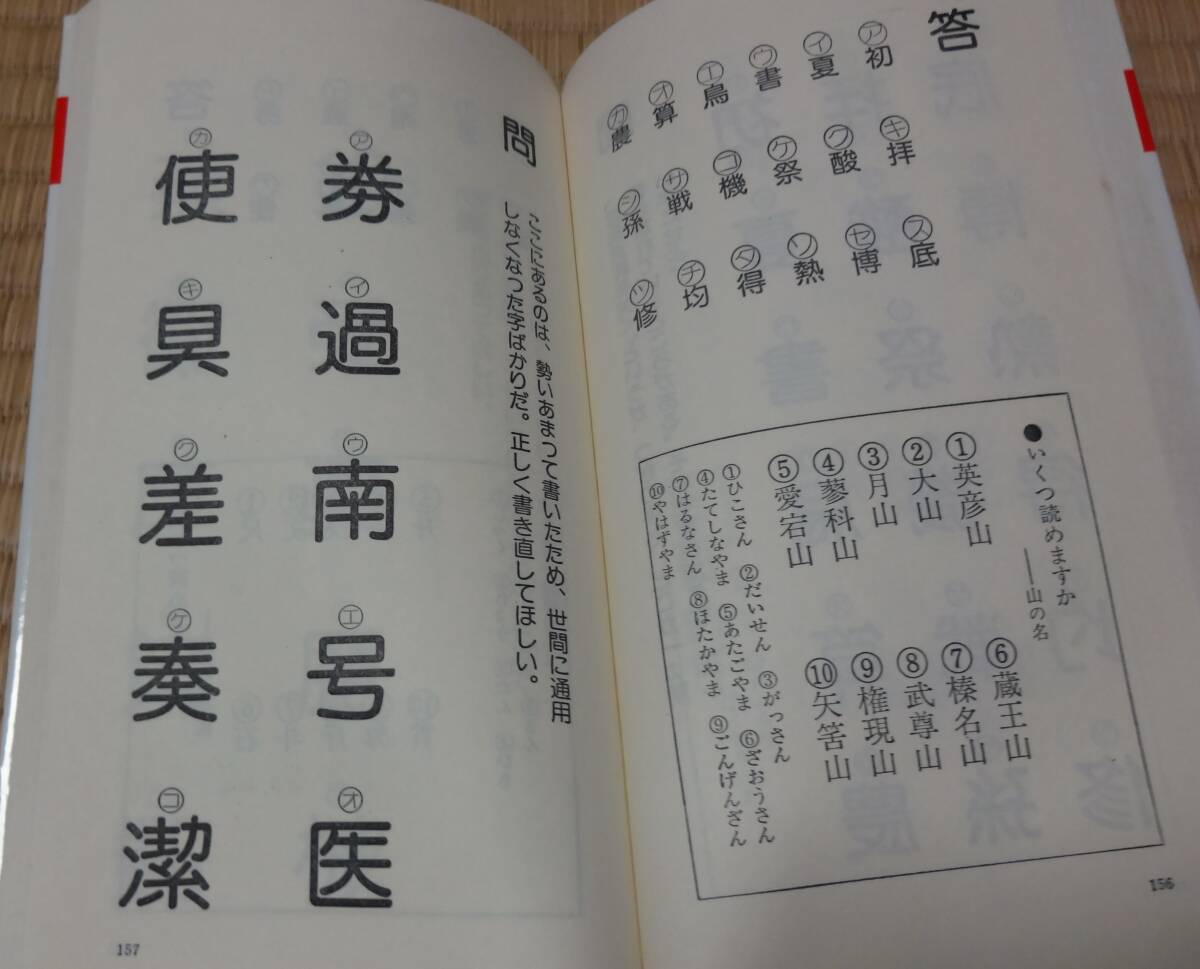 答
㋐初
㋑夏
㋒書
㋓鳥
㋔算
㋕農
㋖拝
㋗酸
㋘祭
㋙機
㋚戦
㋛孫
㋜底
㋝博
㋞熱
㋟得
㋠均
㋡修
●いくつ読めますか
——山の名
①英彦山
②大山
③月山
④蓼科山
⑤愛宕山
⑥蔵王山
⑦榛名山
⑧武尊山
⑨権現山
⑩矢筈山
①ひこさん ②だいせん ③がっさん
④たてしなやま ⑤あたごやま ⑥ざおうさん
⑦はるなさん ⑧ほたかやま ⑨ごんげんざん
⑩やはずやま
156
問
ここにあるのは、勢いあまって書いたため、世間に通用
しなくなった字ばかりだ。正しく書き直してほしい。
㋐劵
㋑過
㋒南
㋓号
㋔医
㋕使
㋖具
㋗差
㋘奏
㋙潔
157